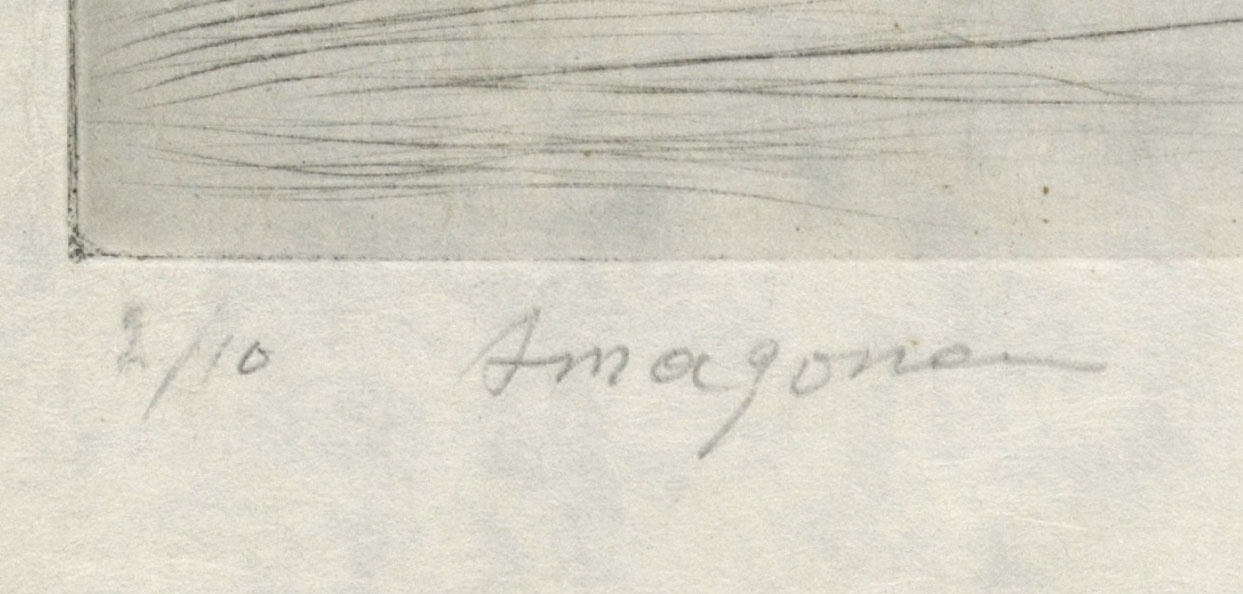 2/10 Amagona